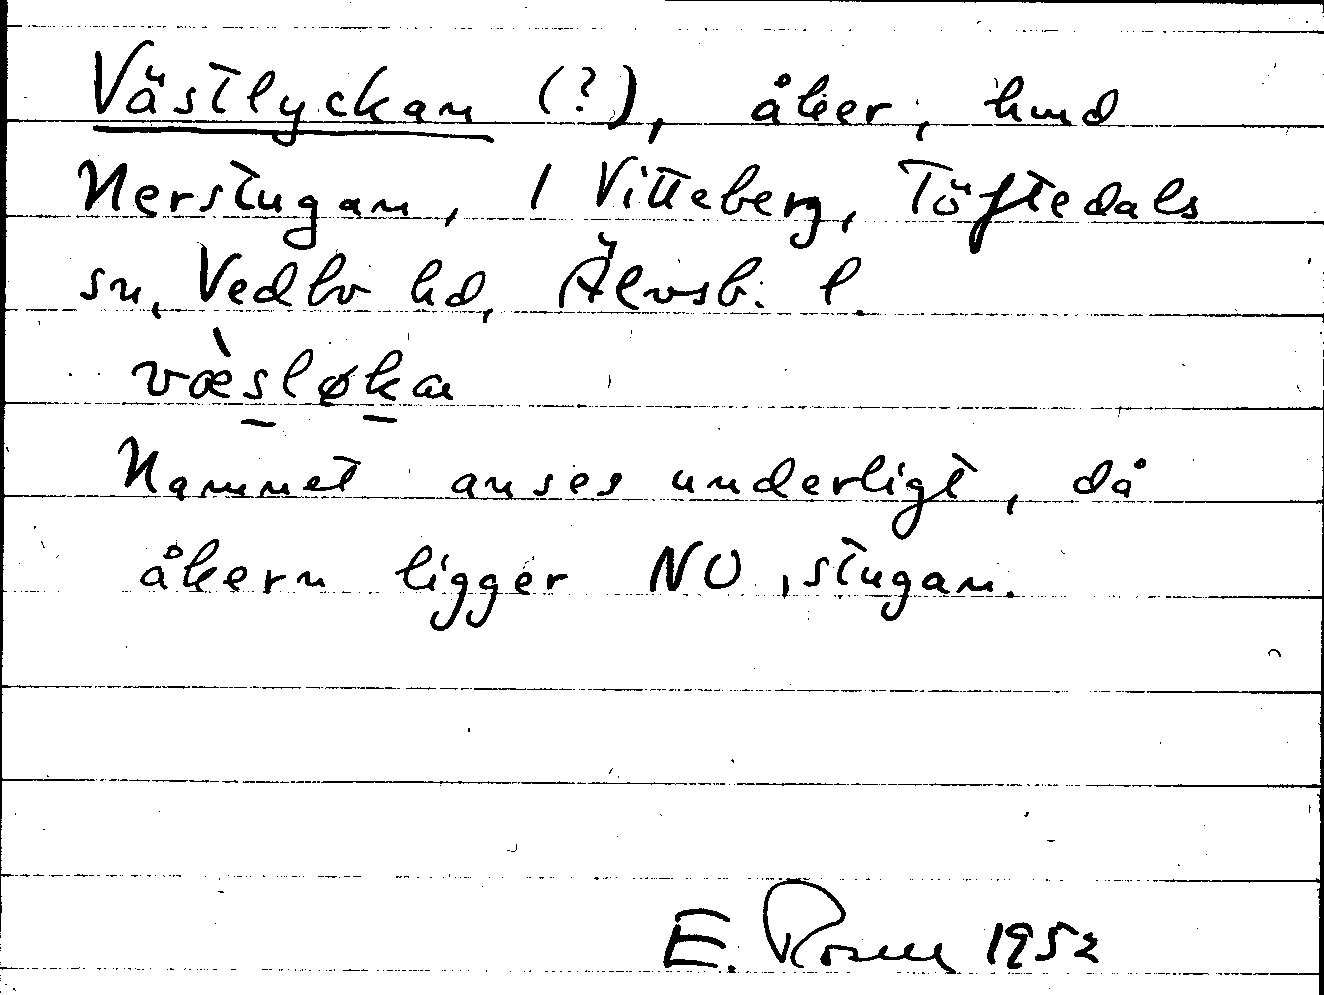 Västlyckan (?), åker, hmd
Nerstugan, 1 Vitteberg, Töftedals
sn, Vedbo hd, Älvsb. l.
væ̀sløka
Namnet anses underligt, då
åkern ligger NO, stugan.
E. Rosell 1952